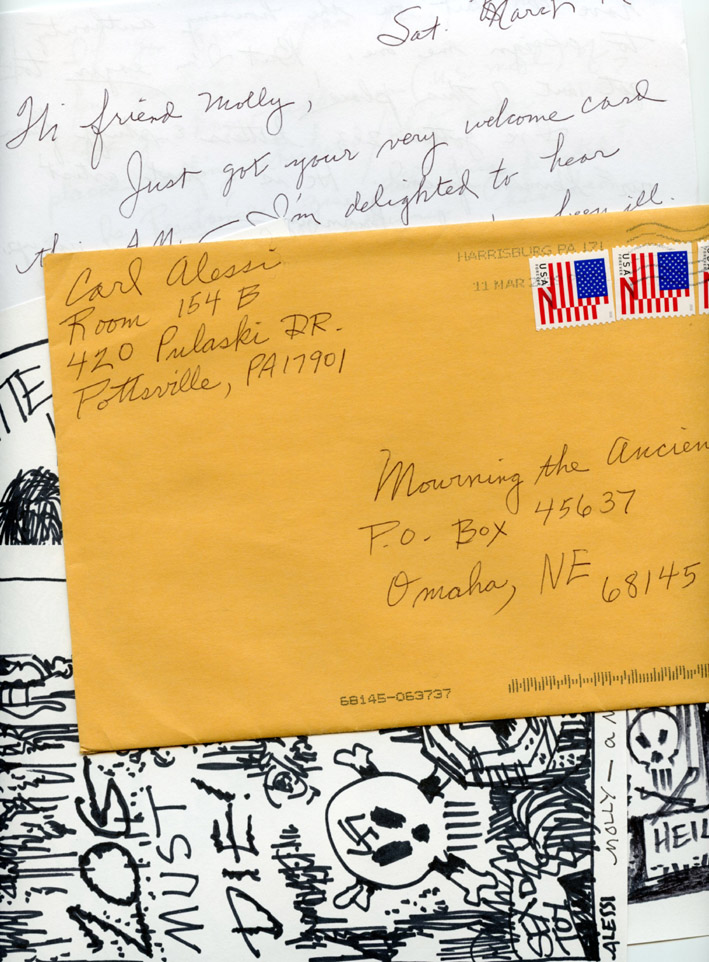 Sat. March
Hi friend Molly,
Just got your very welcome card
I'm delighted to hear
been ill.
Carl Alessi
Room 154 B
420 Pulaski DR.
Pottsville, PA 17901
HARRISBURG PA 171
11 MAR
USA
USA
Mourning the Ancien
P.O. Box 45637
Omaha, NE 68145
68145-063737
ZOG
MUST
DIE!
HEIL
MOLLY — a
ALESSI